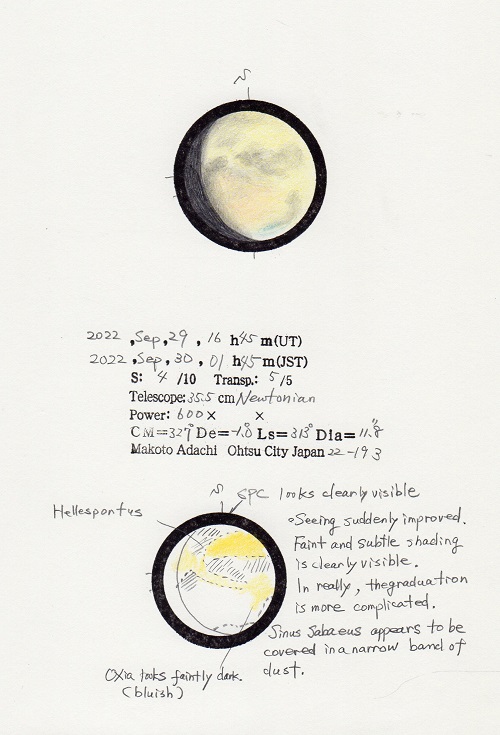 S
2022, Sep, 29, 16 h45 m(UT)
2022, Sep, 30, 01 h45 m(JST)
S: 4 /10 Transp.: 5/5
Telescope: 35.5 cm Newtonian
Power: 600× ×
CM=327° De=-1.0° Ls=313° Dia=11.8"
Makoto Adachi Ohtsu City Japan 22-193
S
SPC looks clearly visible
Hellespontus
Seeing suddenly improved.
Faint and subtle shading
is clearly visible.
In really, thegraduation
is more complicated.
Sinus Sabaeus appears to be
covered in a narrow band of
dust.
Oxia looks faintly dark.
(bluish)